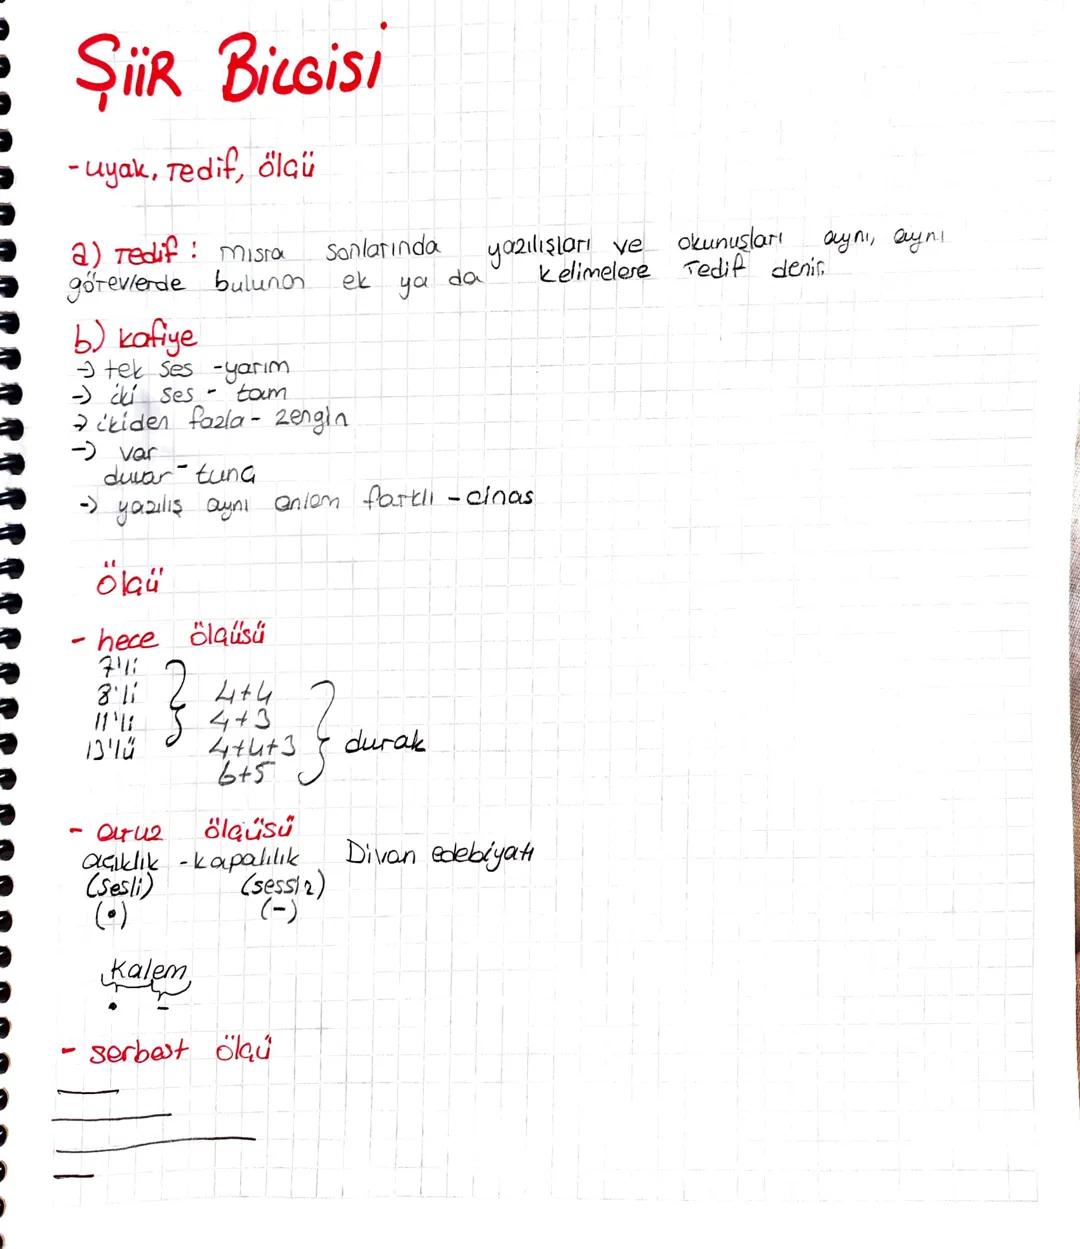 ŞiiR BiLGiSi
-uyak, redif, ölçü
a) redif : mısra sonlarında yazılışları ve okunuşları aynı, aynı
görevlerde bulunan ek ya da kelimelere redif denir.
b) kafiye
→ tek ses -yarım
→ iki ses - tam
→ ikiden fazla - zengin
→ var
duvar - tunç
→ yazılış aynı anlam farklı - cinas
ölçü
- hece ölçüsü
7'li
8'li 4+4
11'li 4+3
13'lü 4+4+3 durak
6+5
- aruz ölçüsü
açıklık - kapalılık Divan edebiyatı
(sesli) (sessiz)
(•) (-)
kalem
• -
- serbest ölçü